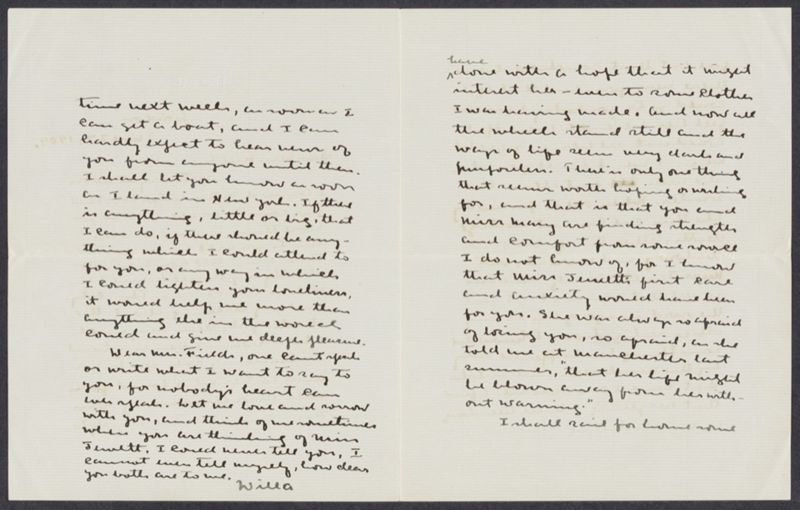 have
done with a hope that it might
interest her - even to some clothes
I was having made. And now all
the wheels stand still and the
ways of life seem very dark and
purposeless. There is only one thing
that seems worth hoping or wishing
for, and that is that you and
Miss Mary are finding strength
and comfort from some source
I do not know of, for I know
that Miss Jewett's first care
and anxiety would have been
for you. She was always so afraid
of losing you, so afraid, as she
told me at Manchester last
summer, "that her life might
be blown away from her with-
out warning."
I shall sail for home some
time next week, as soon as I
can get a boat, and I can
hardly expect to hear news of
you from anyone until then.
I shall let you know as soon
as I land in New York. If there
is anything, little or big, that
I can do, if there should be any-
thing which I could attend to
for you, or any way in which
I could lighten your loneliness,
it would help me more than
anything else in the world
could and give me deeper pleasure.
Dear Mrs. Fields, one can't speak
or write what I want to say to
you, for nobody's heart can
ever speak. Let me love and sorrow
with you, and think of me sometimes
when you are thinking of Miss
Jewett. I could never tell you, I
cannot even tell myself, how dear
you both are to me.
Willa